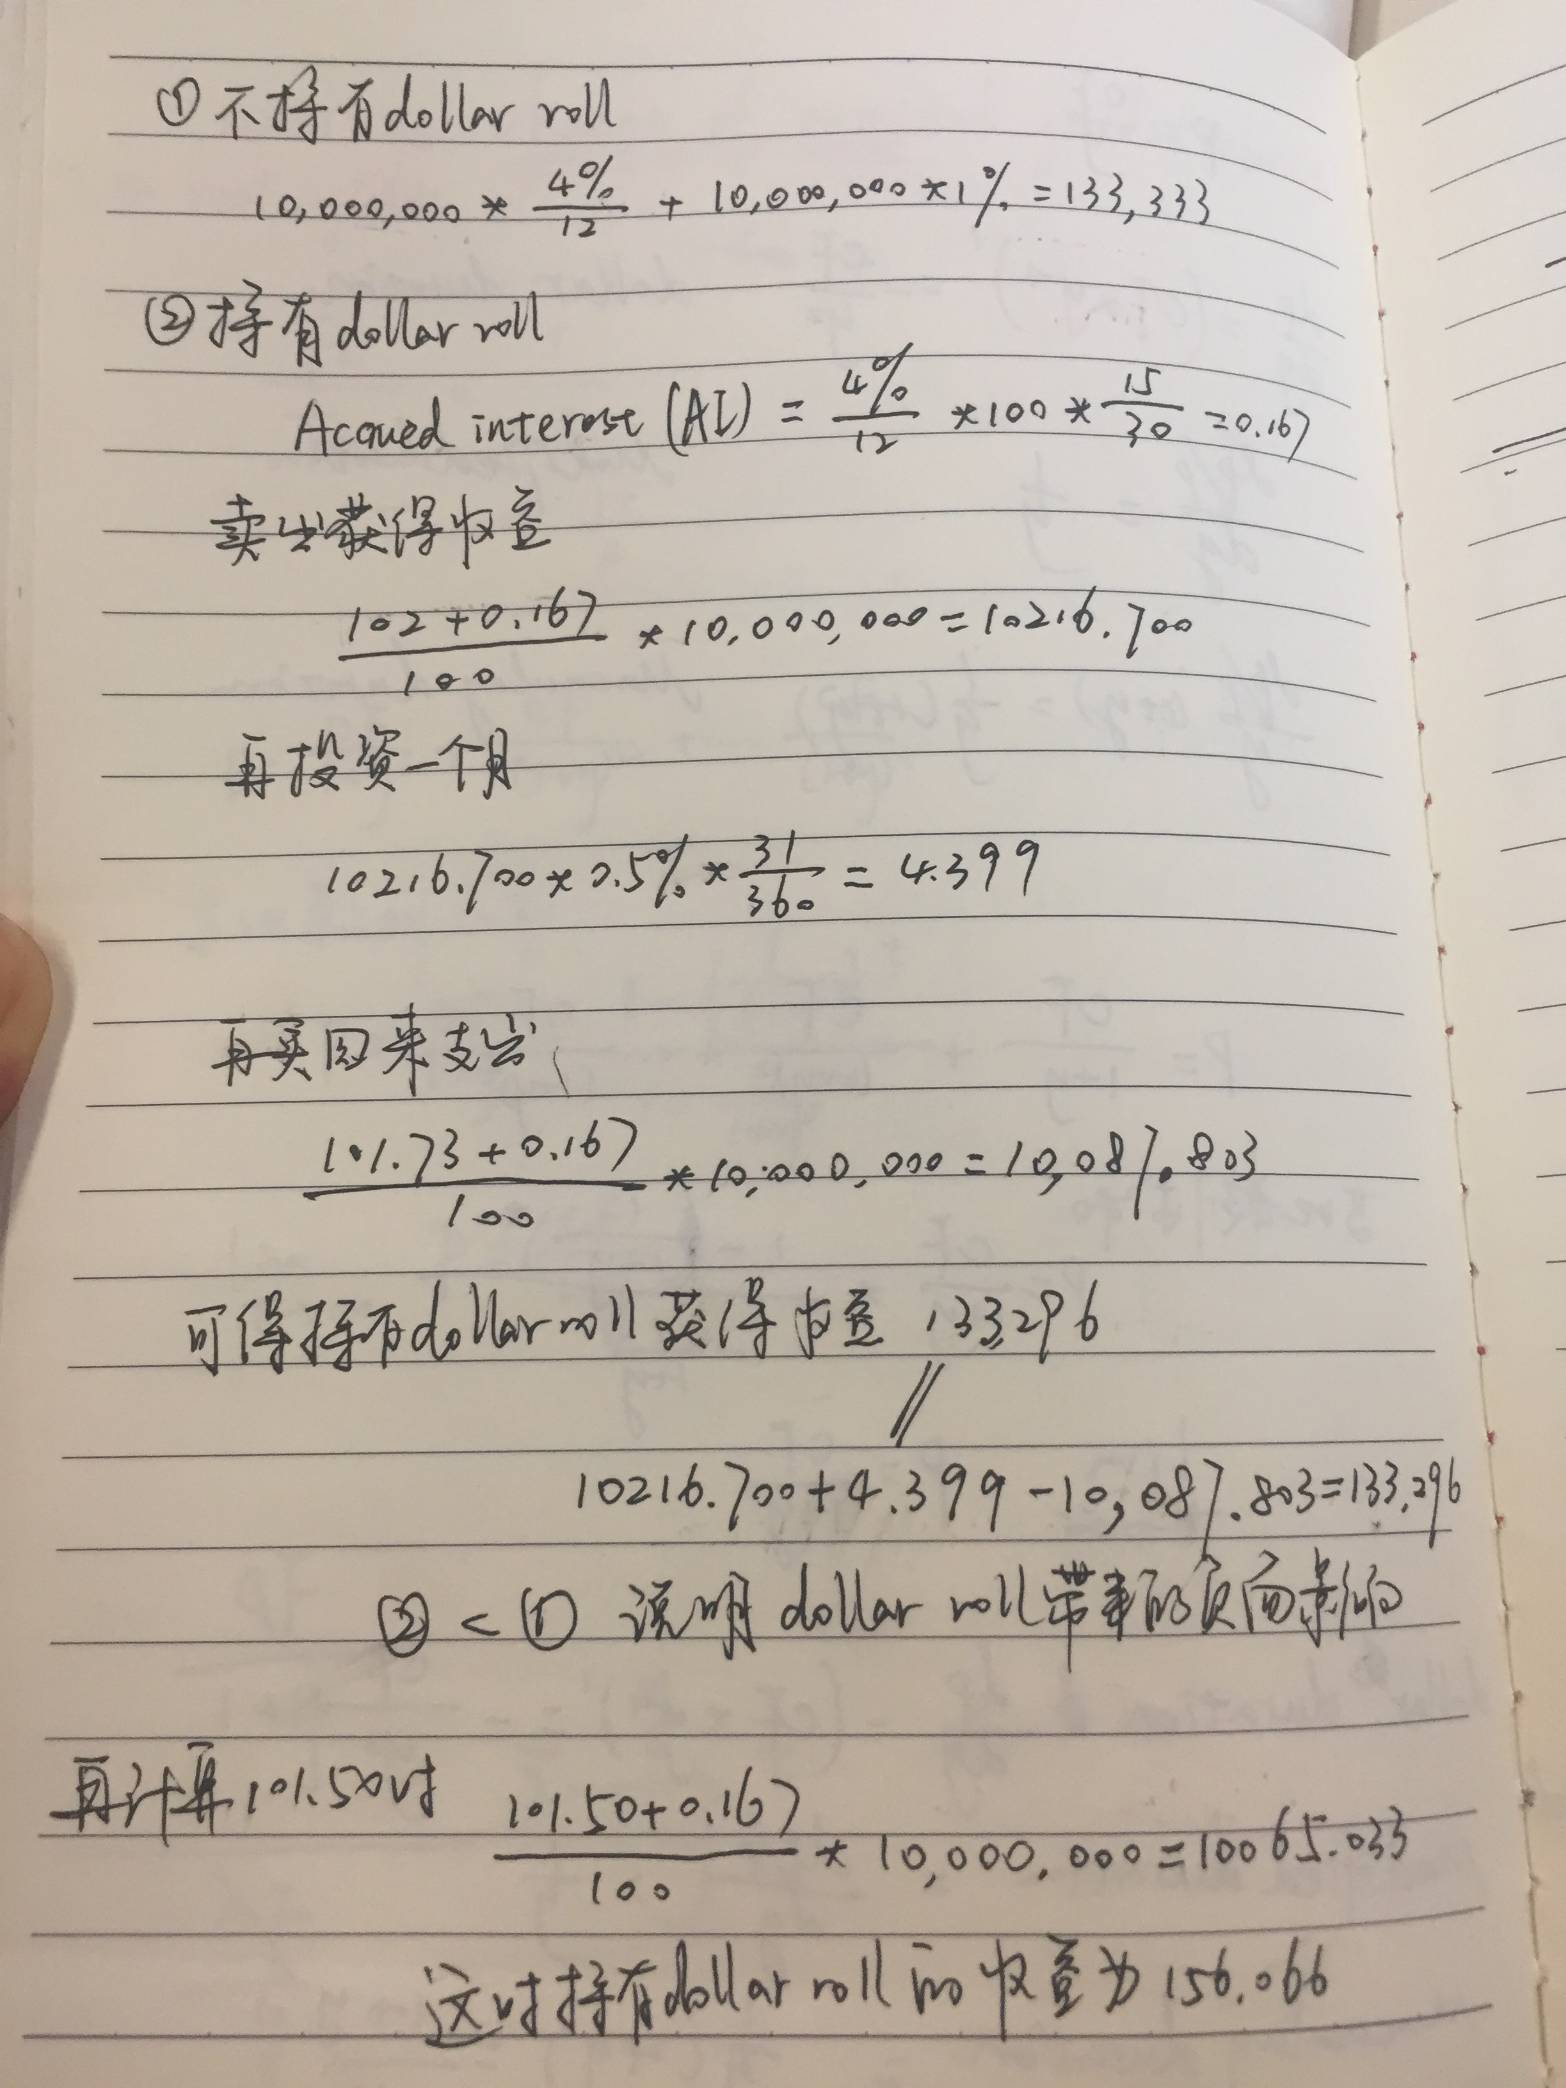 ①不持有dollar roll
10,000,000 * 4%/12 + 10,000,000 * 1% = 133,333
②持有dollar roll
Accrued interest (AI) = 4%/12 * 100 * 15/30 = 0.167
卖出获得收益
(102 + 0.167)/100 * 10,000,000 = 10216.700
再投资一个月
10216.700 * 0.5% * 31/360 = 4.399
再买回来支出
(101.73 + 0.167)/100 * 10,000,000 = 10,087.803
可得持有dollar roll 获得收益 133,296
10216.700 + 4.399 - 10,087.803 = 133,296
② < ① 说明 dollar roll 带来的负面影响
再计算101.50时 (101.50 + 0.167)/100 * 10,000,000 = 10065.033
这时持有dollar roll 的收益为 156.066